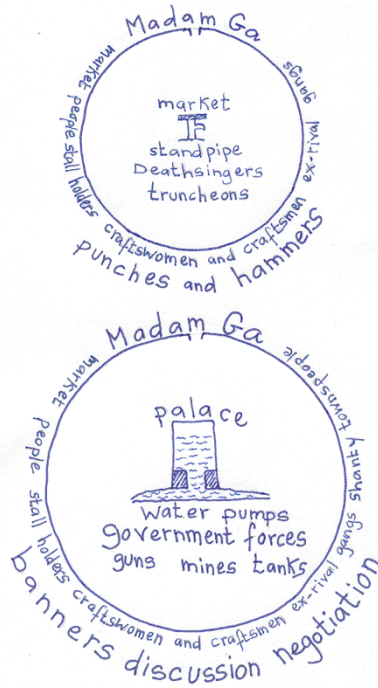 Madam Ga
market people stall holders craftswomen and craftsmen ex-rival gangs
market
standpipe
Deathsingers
truncheons
punches and hammers
Madam Ga
market people stall holders craftswomen and craftsmen ex-rival gangs shanty townspeople
palace
water pumps
government forces
guns mines tanks
banners discussion negotiation